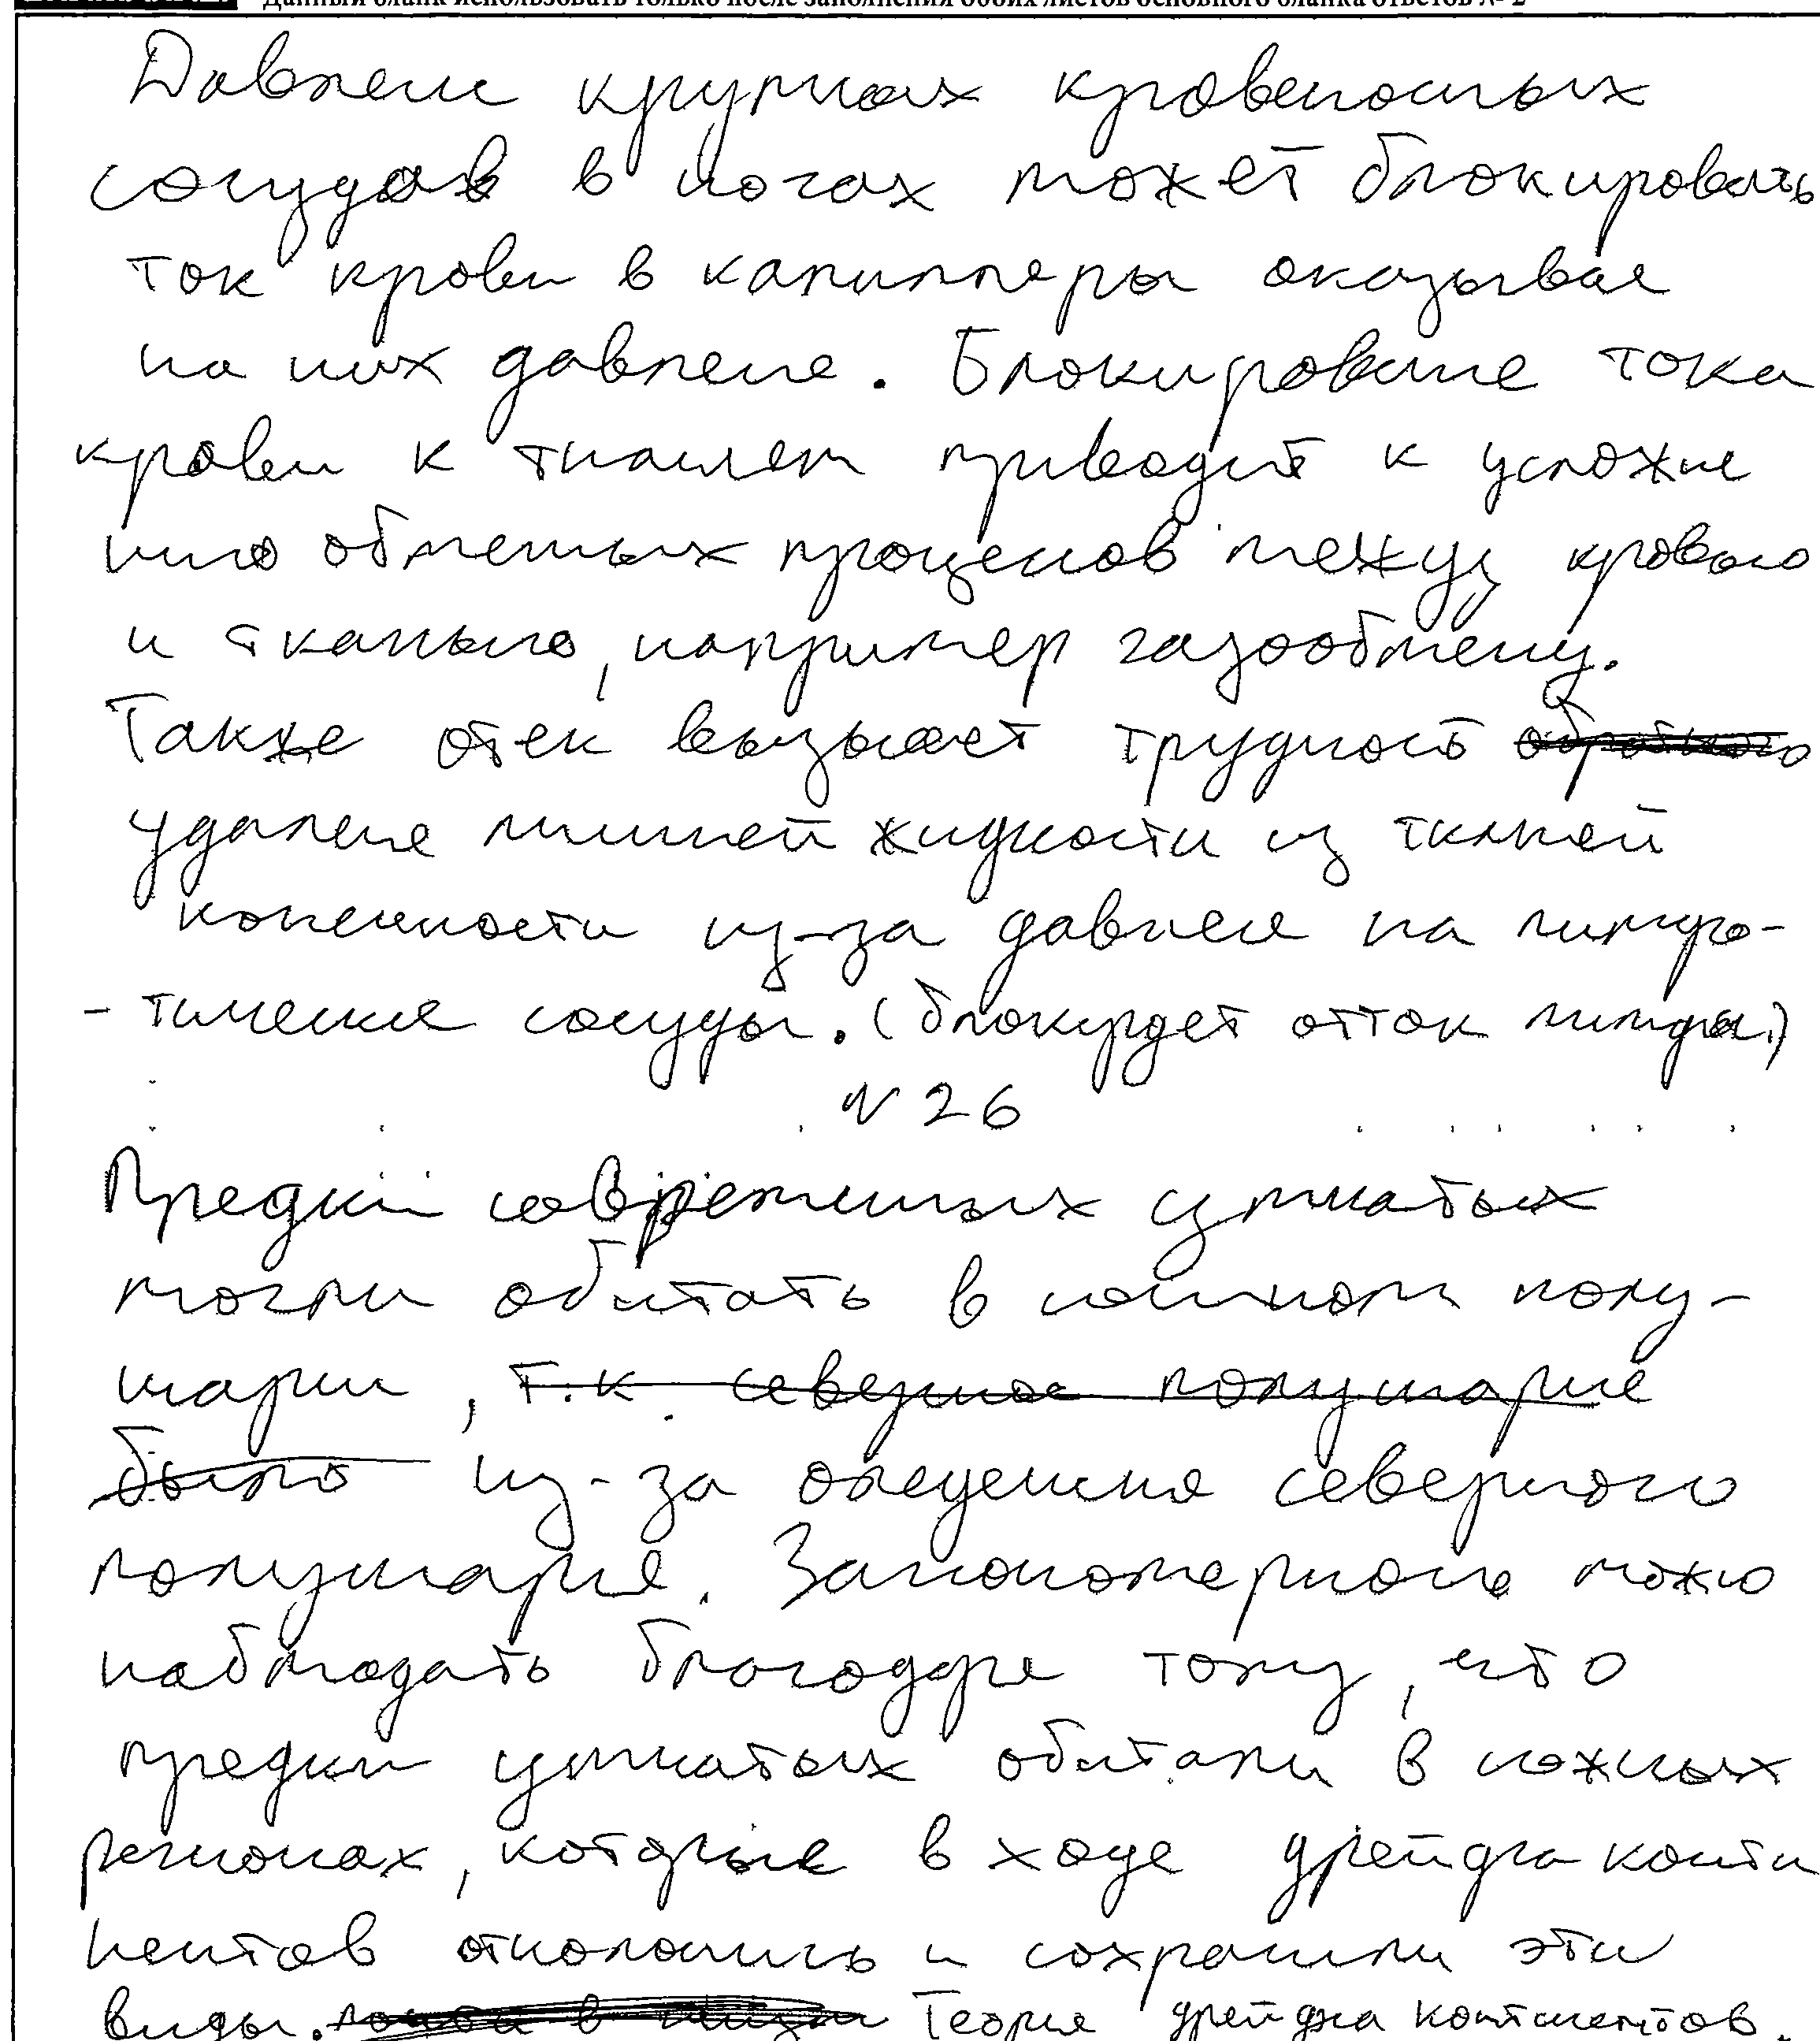 Данный бланк использовать только после заполнения обоих листов основного бланка ответов № 2
Давление крупных кровеносных
сосудов в ногах может блокировать
ток крови в капилляры оказывая
на них давление. Блокирование тока
крови к тканям приводит к усложне
нию обменных процессов между кровью
и тканью, например газообмену.
Также отек вызывает трудность обратного
удаление лишней жидкости из тканей
конечности из-за давление на лимфо-
- тические сосуды. (блокирует отток лимфы.)
№ 26
Предки современных сумчатых
могли обитать в южном полу-
шарии, т.к. северное полушарие
было из-за оледенения северного
полушария. Закономерность можно
наблюдать благодаря тому, что
предки сумчатых обитали в южных
регионах, которые в ходе дрейфа конти
нентов откололись и сохранили эти
виды. Теория дрейфа континентов.